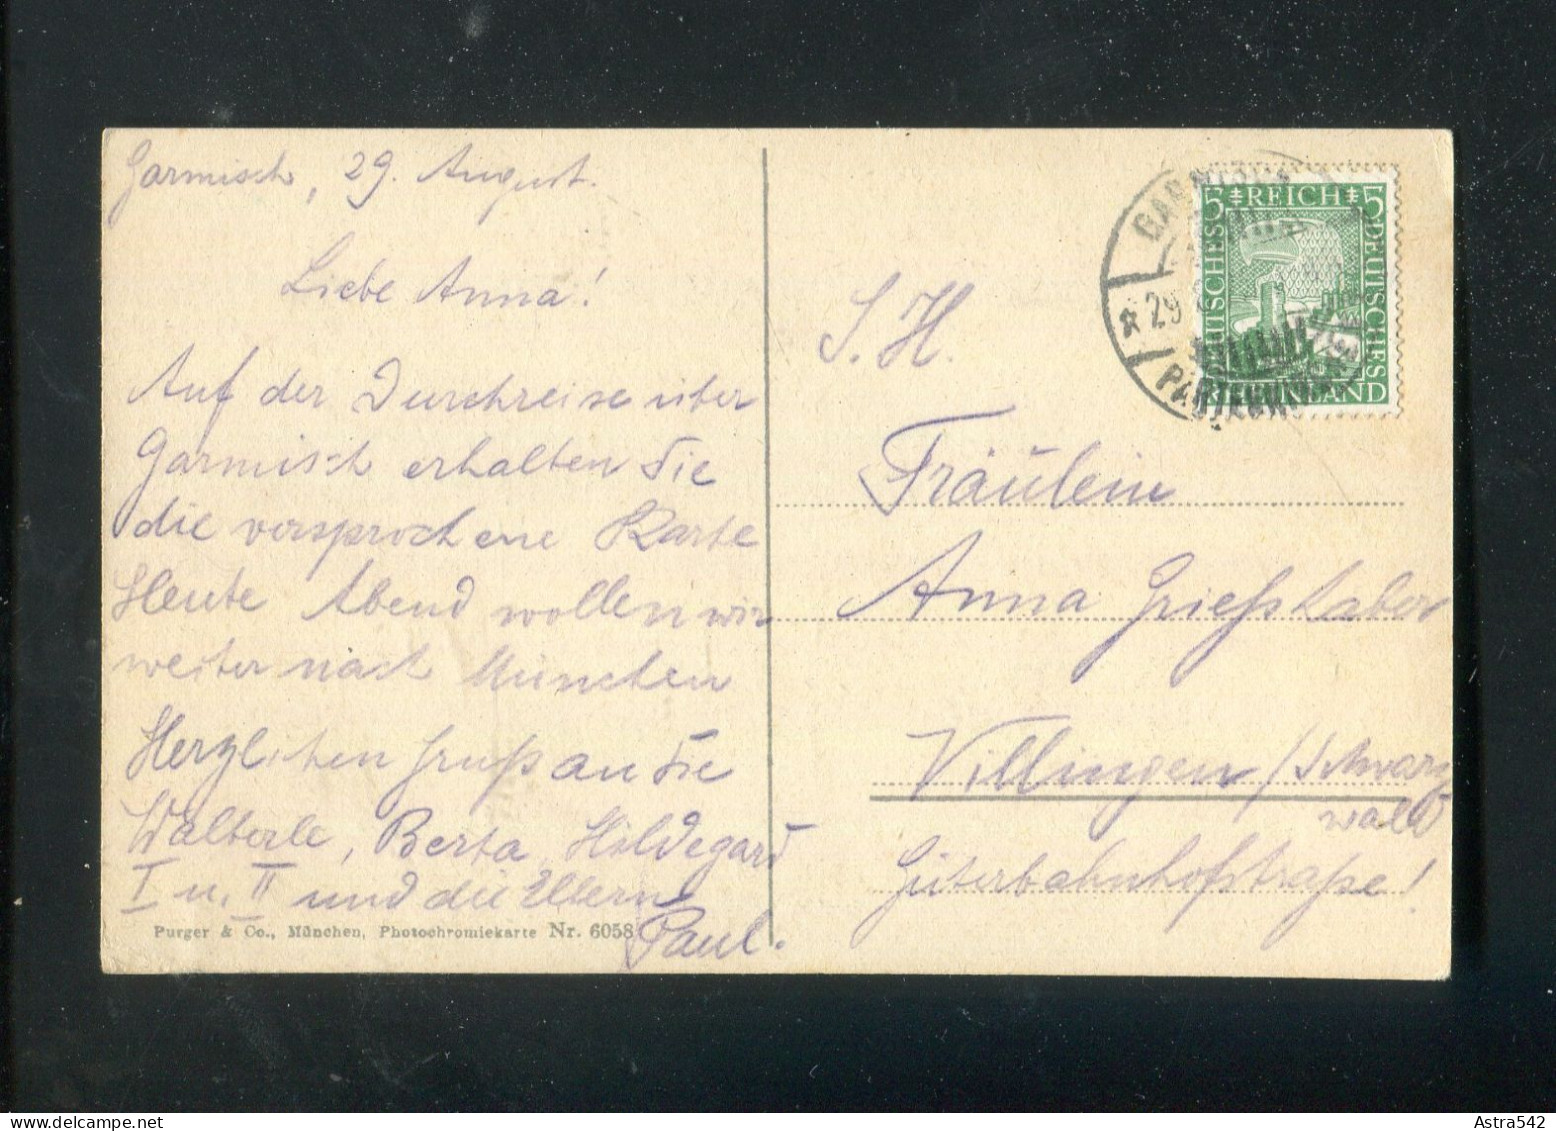 Garmisch, 29. August.
Liebe Anna!
Auf der Durchreise über
Garmisch erhalten Sie
die versprochene Karte
Heute Abend wollen wir
weiter nach München
Herzlichen Gruß an Sie
Walterle, Berta, Hildegard
I u. II und die Eltern
Paul.
Purger & Co., München, Photochromiekarte Nr. 6058
5 REICH 5
DEUTSCHES
RHEINLAND
GARMISCH
29
PARTENKIRCHEN
S. H.
Fräulein
Anna Grießhaber
Villingen / Schwarz
wald
Güterbahnhofstraße!
Astra542